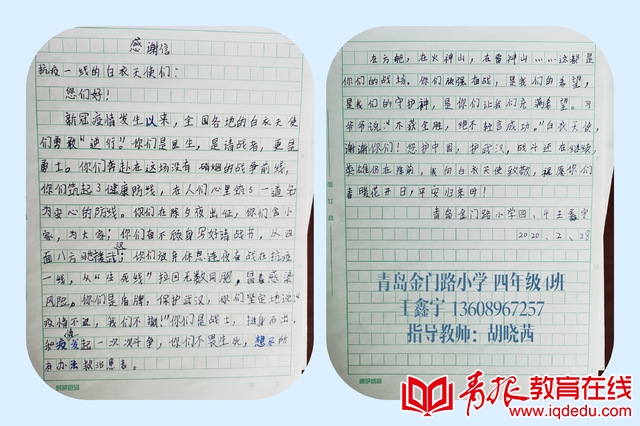 感谢信
抗疫一线的白衣天使们：
您们好！
新冠疫情发生以来，全国各地的白衣天使
们勇敢“逆行”。你们是医生，是请战者，更是
勇士。你们奔赴在这场没有硝烟的战争前线，
你们筑起了健康防线，在人们心里筑了一道名
为安心的防线。你们在除夕夜出征，你们舍小
家，为大家；你们奋不顾身写好请战书，从四
面八方迅速接武；你们放弃休息连夜奋战在抗疫
一线，从“生死线”拉回无数同胞，冒着感染
风险。你们是盾牌，保护武汉，你们坚定地说：
“疫情不退，我们不撤！”你们是战士，挺身而出，
和疫情发起一次次斗争，你们不畏生死，想尽所
有办法救治患者。
在方舱，在火神山，在雷神山……这都是
你们的战场。你们顽强奋战，是我们的希望，
是我们的守护神，是你们让我们充满希望。习
爷爷说：“不获全胜，绝不轻言成功。”白衣天使，
谢谢你们！您护中国，护武汉，战斗还在继续，
英雄仍在阵前，我向白衣天使致敬，祝愿你们
春暖花开日，平安归来时！
青岛金门路小学四、4王鑫宇
2020.2.28
青岛金门路小学 四年级4班
王鑫宇 13608967257
指导教师：胡晓茜
青报教育在线
www.iqdedu.com